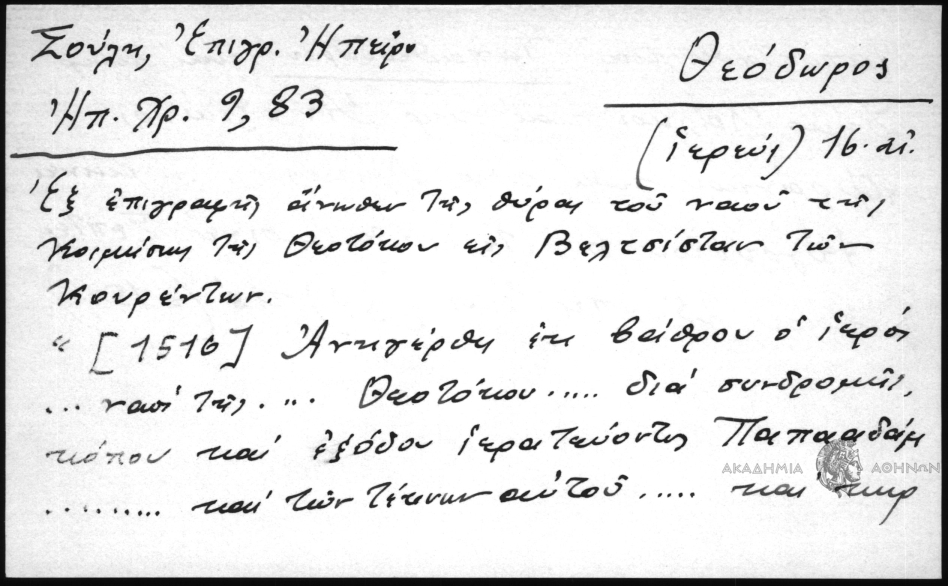 Σούλη, Ἐπιγρ. Ἠπείρου
Ἠπ. Χρ. 9, 83
Θεόδωρος
(ἱερεύς) 16. αἰ.
Ἐξ ἐπιγραφῆς ἄνωθεν τῆς θύρας τοῦ ναοῦ τῆς
Κοιμήσεως τῆς Θεοτόκου εἰς Βελτσίσταν τῶν
Κουρέντων.
"[1516] Ἀνηγέρθη ἐκ βάθρου ὁ ἱερός
... ναός τῆς .... Θεοτόκου ..... διά συνδρομῆς,
κόπου καί ἐξόδου ἱερατεύοντος Παπααδάμ
......... καί τῶν τέκνων αὐτοῦ ..... καί κυρ
ΑΚΑΔΗΜΙΑ ΑΘΗΝΩΝ